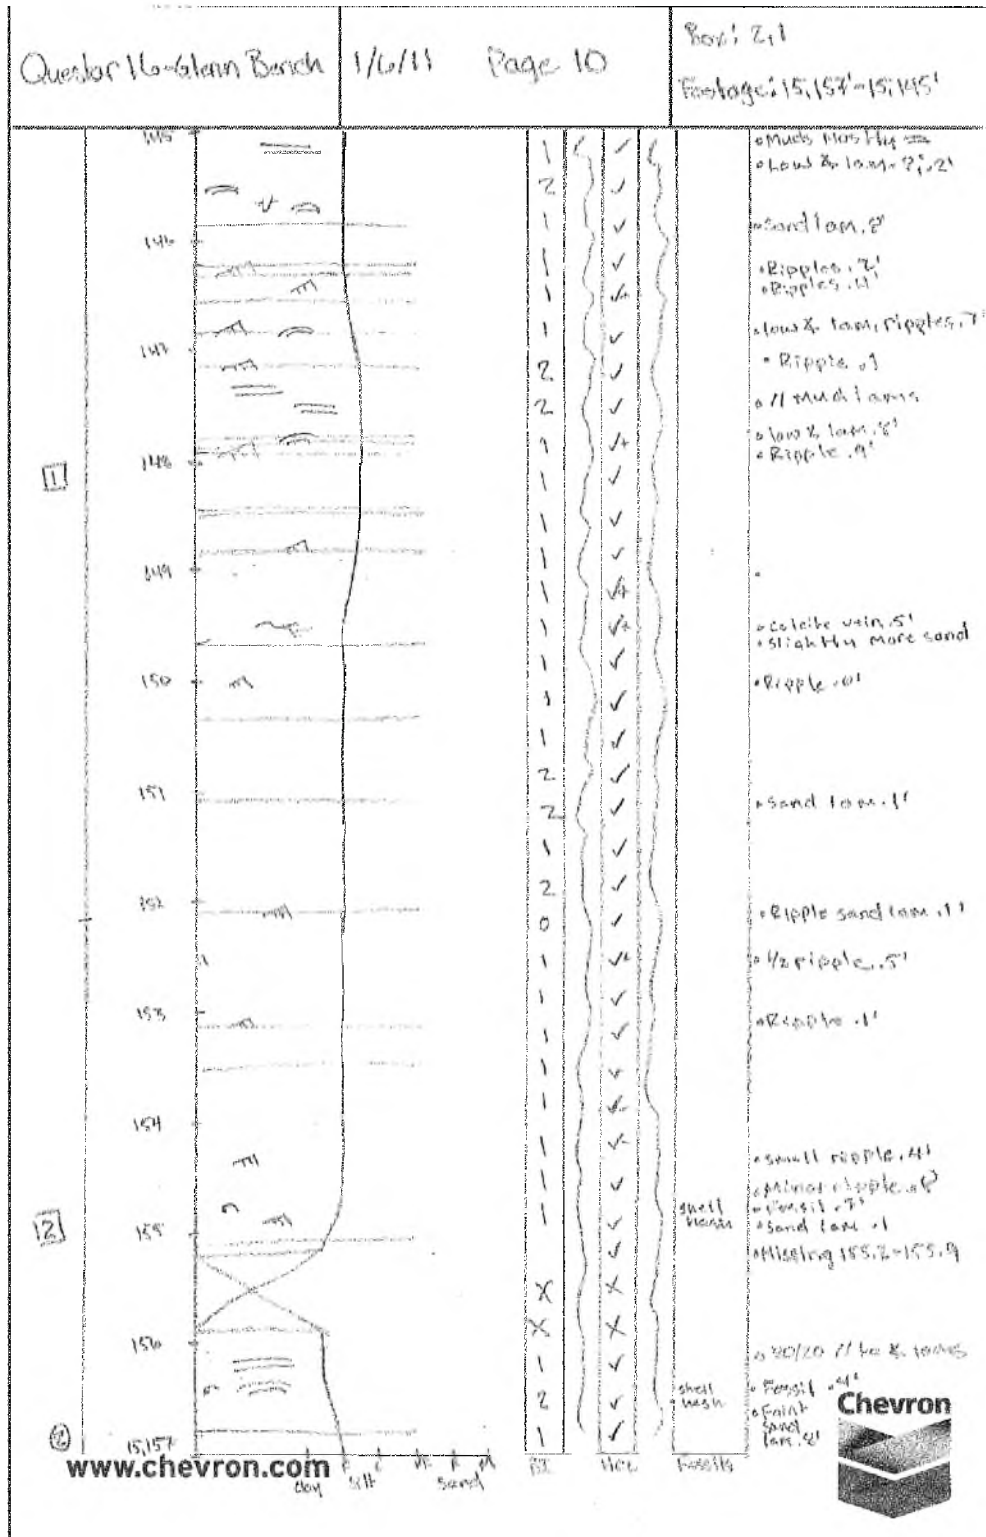 Questar 16-Glenn Bench
1/6/11
Page 10
Box: 2,1
Footage: 15,157'-15,145'
145
146
147
148
149
150
151
152
153
154
155
156
15,157
1
2
2
1
2
1
1
1
1
2
2
1
1
1
1
1
1
1
1
1
2
2
1
2
0
1
1
1
1
1
1
1
1
X
X
1
2
1
• Muds Mostly
• Low & lam. .2'
• Sand lam .8'
• Ripples .2'
• Ripples .4'
• low & lam, ripples .7'
• Ripple .1
• // Mud lams
• low & lam .8'
• Ripple .9'
• Calcite vein .5'
• Slightly more sand
• Ripple .0'
• Sand lam .1'
• Ripple sand lam .1'
• 1/2 ripple .5'
• Ripple .1'
• small ripple .4'
• Minor ripple .8
• Fossil .7'
• Sand lam .1
• Missing 155.2-155.9
shell
hash
shell
hash
• Fossil .4'
• Faint
sand
lam .8'
Clay
Silt
Sand
BI
HCL
Fossils
www.chevron.com
Chevron